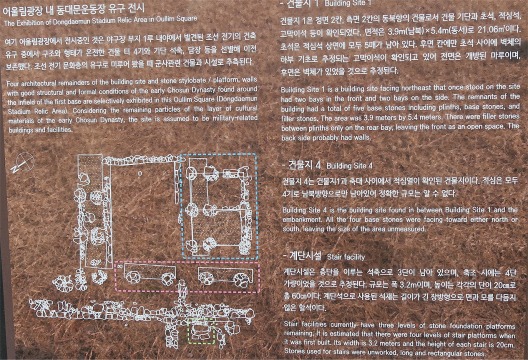 어울림광장 내 동대문운동장 유구 전시
The Exhibition of Dongdaemun Stadium Relic Area in Oullim Square
여기 어울림광장에서 전시중인 것은 야구장 부지 1루 내야에서 발견된 조선 전기의 건축
유구 중에서 구조와 형태가 온전한 건물 터 4기와 기단 석축, 담장 등을 선별해 이전
보존했다. 조선 전기 문화층의 유구로 미루어 봤을 때 군사관련 건물과 시설로 추측된다.
Four architectural remainders of the building site and stone stylobate / platform, walls
with good structural and formal conditions of the early Chosun Dynasty found around
the infield of the first base are selectively exhibited in this Oullim Square (Dongdaemun
Stadium Relic Area). Considering the remaining particles of the layer of cultural
materials of the early Chosun Dynasty, the site is assumed to be military-related
buildings and facilities.
- 건물지 1 Building Site 1
건물지 1은 정면 2칸, 측면 2칸의 동북향의 건물로서 건물 기단과 초석, 적심석,
고막이석 등이 확인되었다. 면적은 3.9m(남북)×5.4m(동서)로 21.06㎡이다.
초석은 적심석 상면에 모두 5매가 남아 있다. 후면 칸에만 초석 사이에 벽체의
하부 기초로 추정되는 고막이석이 확인되고 있어 전면은 개방된 마루이며,
후면은 벽체가 있었을 것으로 추정된다.
Building Site 1 is a building site facing northeast that once stood on the site
had two bays in the front and two bays on the side. The remnants of the
building had a total of five base stones including plinths, base stones, and
filler stones. The area was 3.9 meters by 5.4 meters. There were filler stones
between plinths only on the rear bay, leaving the front as an open space. The
back side probably had walls.
- 건물지 4 Building Site 4
건물지 4는 건물지1과 축대 사이에서 적심열이 확인된 건물지이다. 적심은 모두
4기로 남북방향으로만 남아있어 정확한 규모는 알 수 없다.
Building Site 4 is the building site found in between Building Site 1 and the
embankment. All the four base stones were facing toward either north or
south, leaving the size of the area unmeasured.
- 계단시설 Stair facility
계단시설은 층단을 이루는 석축으로 3단이 남아 있으며, 축조 시에는 4단
가량이었을 것으로 추정된다. 규모는 폭 3.2m이며, 높이는 각각의 단이 20㎝로
총 60㎝이다. 계단석으로 사용된 석재는 길이가 긴 장방형으로 면과 모를 다듬지
않은 형식이다.
Stair facilities currently have three levels of stone foundation platforms
remaining. It is estimated that there were four levels of stair platforms when
it was first built. Its width is 3.2 meters and the height of each stair is 20cm.
Stones used for stairs were unworked, long and rectangular stones.